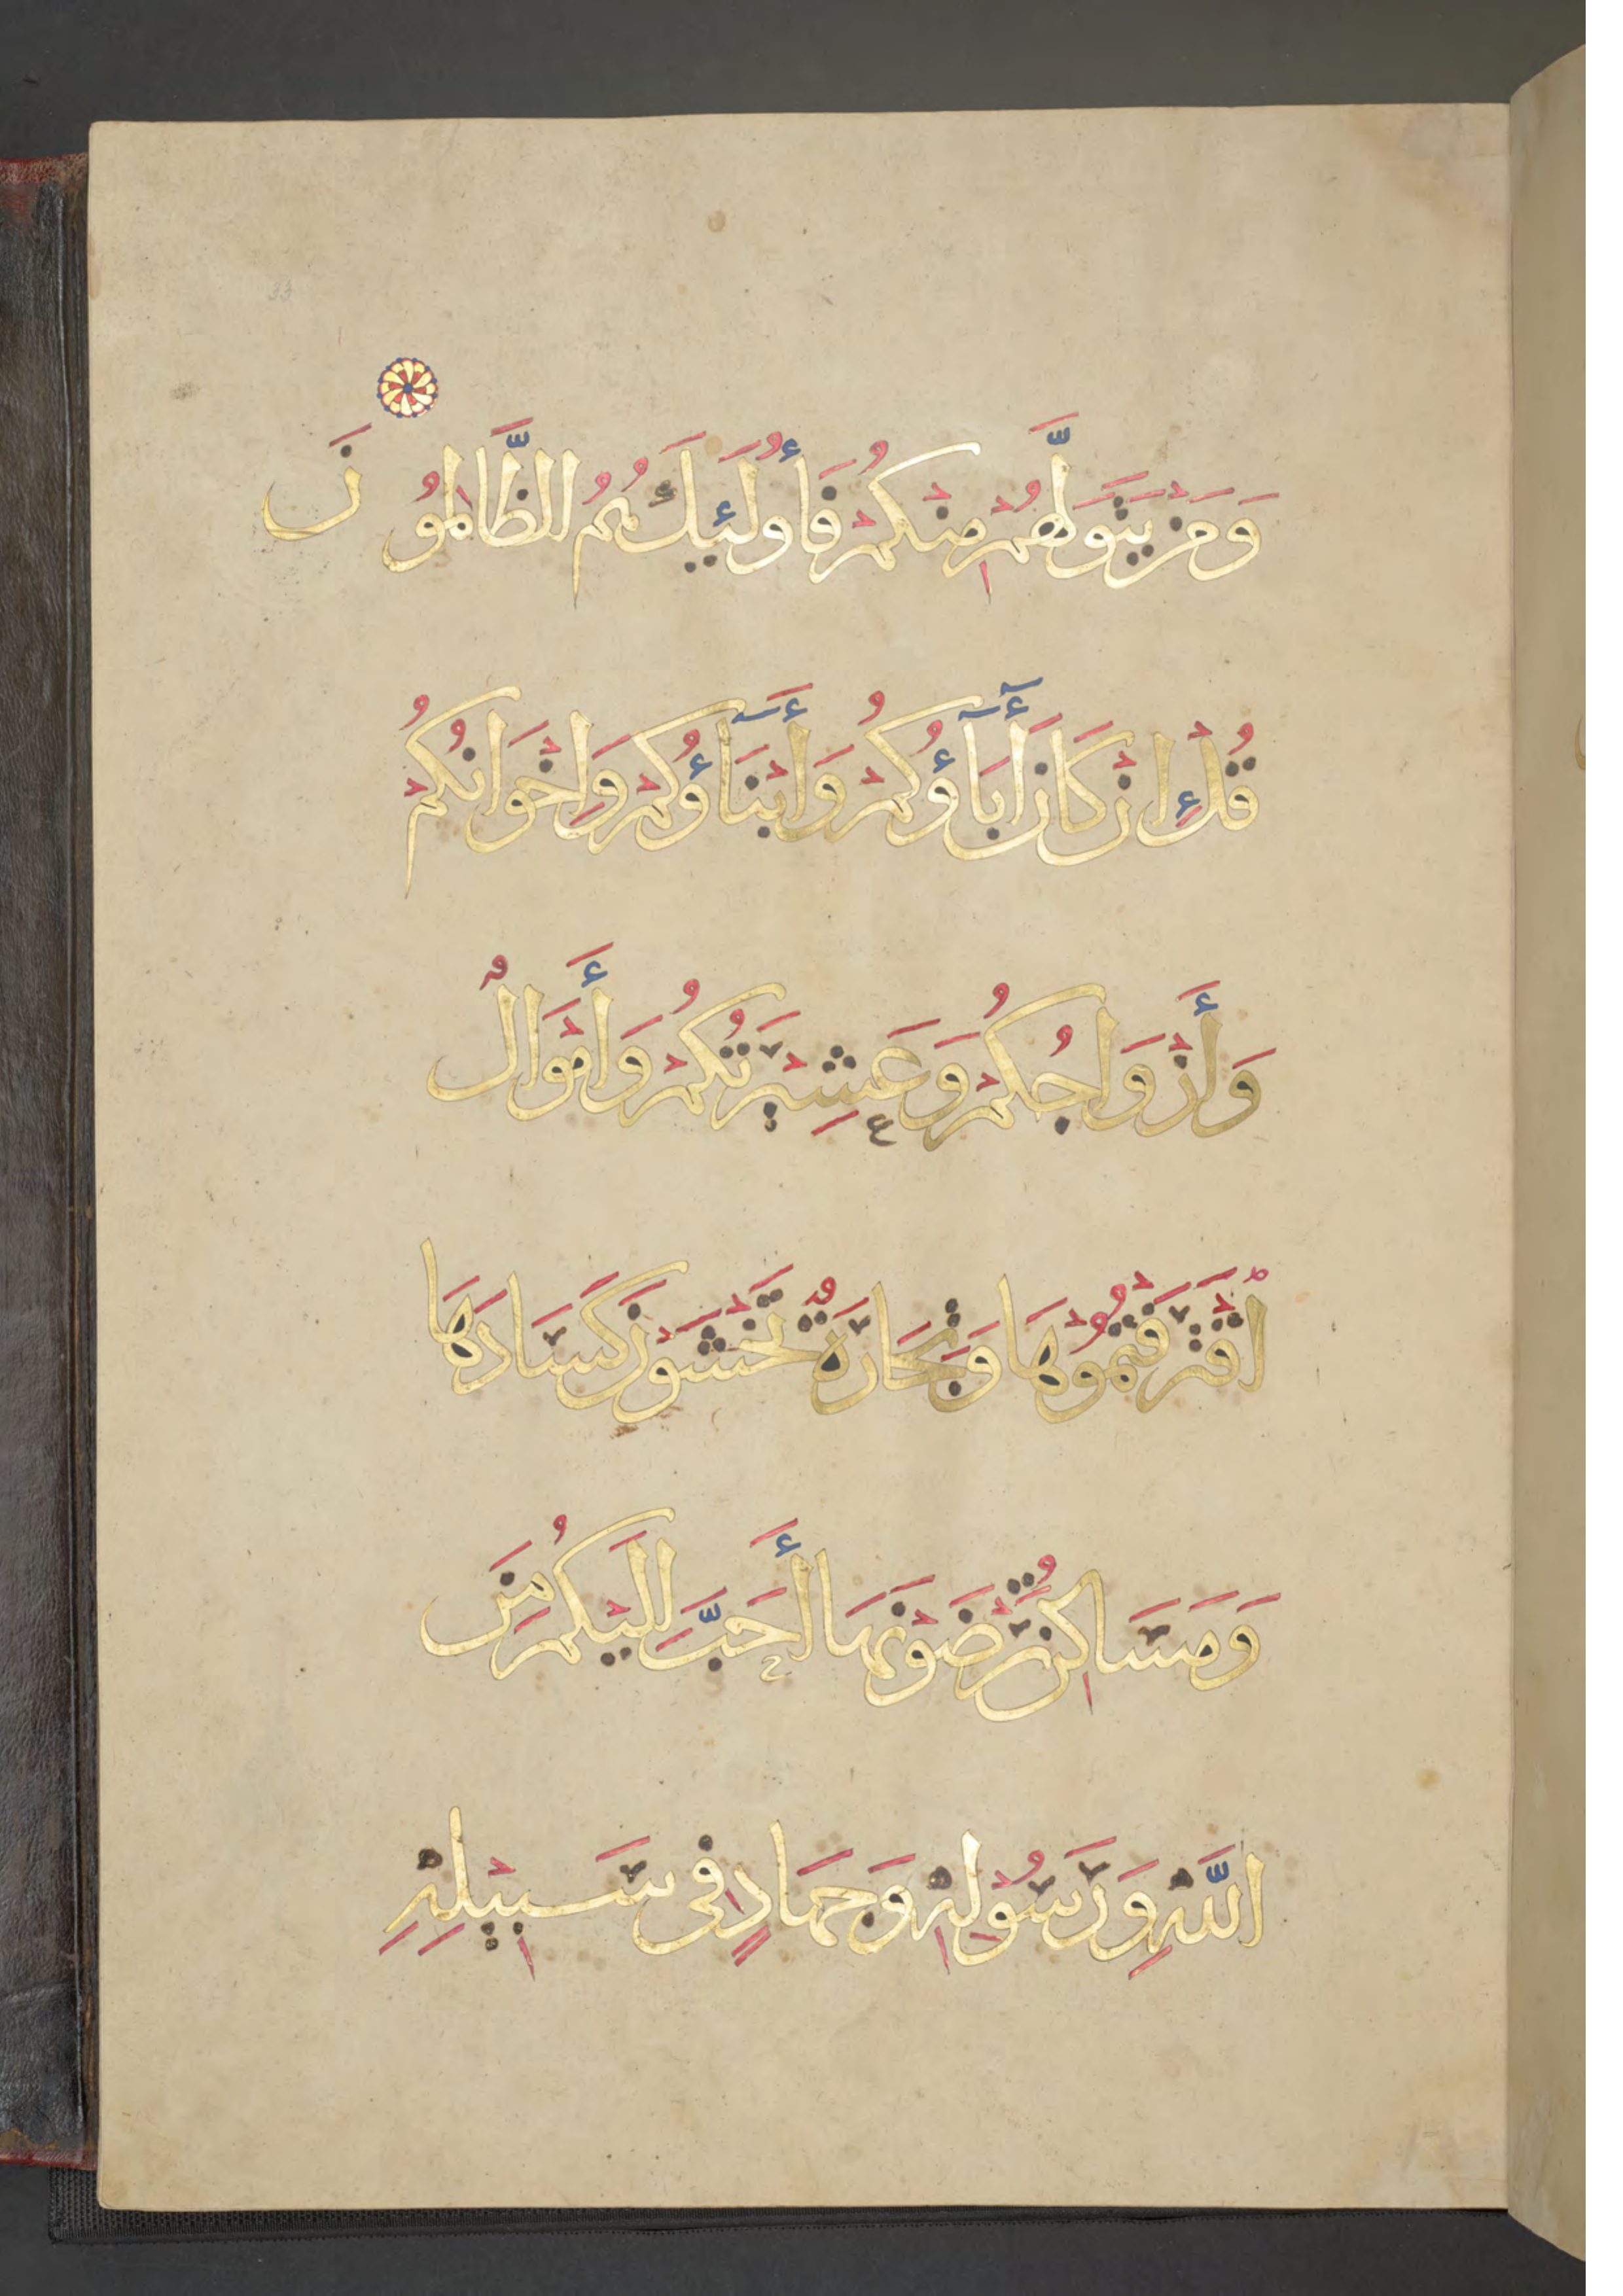 وَمَنْ يَتَوَلَّهُمْ مِنْكُمْ فَأُولَئِكَ هُمُ الظَّالِمُونَ
قُلْ إِنْ كَانَ أَبَآؤُكُمْ وَأَبْنَآؤُكُمْ وَإِخْوَانُكُمْ
وَأَزْوَاجُكُمْ وَعَشِيرَتُكُمْ وَأَمْوَالٌ
اقْتَرَفْتُمُوهَا وَتِجَارَةٌ تَخْشَوْنَ كَسَادَهَا
وَمَسَاكِنُ تَرْضَوْنَهَا أَحَبَّ إِلَيْكُمْ مِنَ
اللَّهِ وَرَسُولِهِ وَجِهَادٍ فِي سَبِيلِهِ